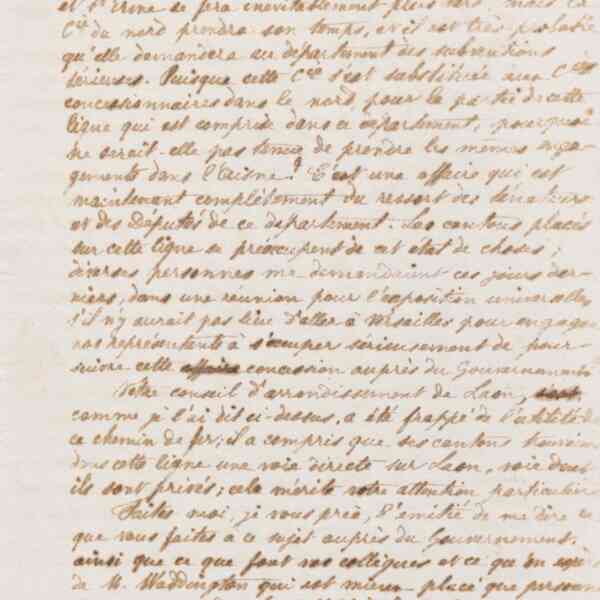 et St Erme se fera inévitablement plus tard. mais la
Cie du nord prendra son temps, et il est très probable
qu'elle demandera au département des subventions
sérieuses. Puisque cette Cie s'est substituée aux Cies
concessionnaires dans le nord pour la partie de cette
ligne qui est comprise dans ce département, pourquoi
ne serait-elle pas tenue de prendre les mêmes enga-
gements dans l'Aisne? C'est une affaire qui est
maintenant complètement du ressort des Sénateurs
et des Députés de ce département. Les cantons placés
sur cette ligne se préoccupent de cet état de choses;
diverses personnes me demandaient ces jours der-
niers, dans une réunion pour l'exposition universelle,
s'il n'y aurait pas lieu d'aller à Versailles pour engager
nos représentants à s'occuper sérieusement de pour-
suivre cette affaire concession auprès du Gouvernement
Notre conseil d'arrondissement de Laon,
comme je l'ai dit ci-dessus, a été frappé de l'utilité de
ce chemin de fer; il a compris que ses cantons
dans cette ligne une voie directe sur Laon, voie dont
ils sont privés; cela mérite votre attention particulière
Faites moi, je vous prie, l'amitié de me dire ce
que vous faites à ce sujet auprès du Gouvernement,
ainsi que ce que font vos collègues et ce qu'on
de M. Waddington qui est mieux placé que personne